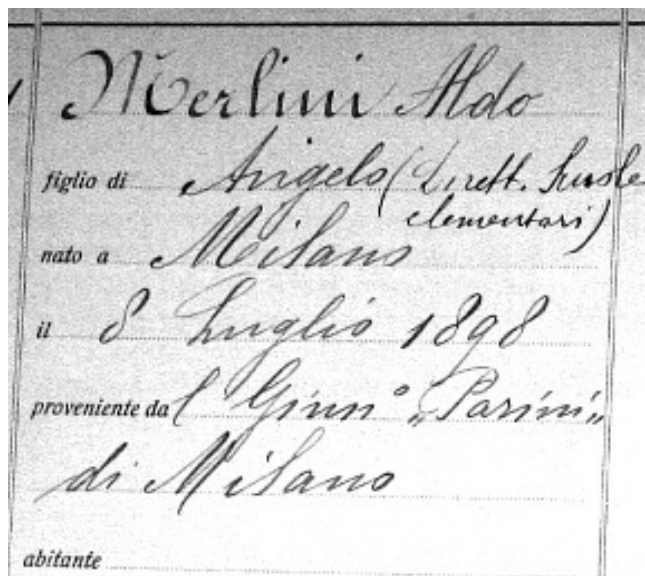 Merlini Aldo
figlio di Angelo (Dirett. Scuole
elementari)
nato a Milano
il 8 Luglio 1898
proveniente da l Ginn° „Parini„
di Milano
abitante